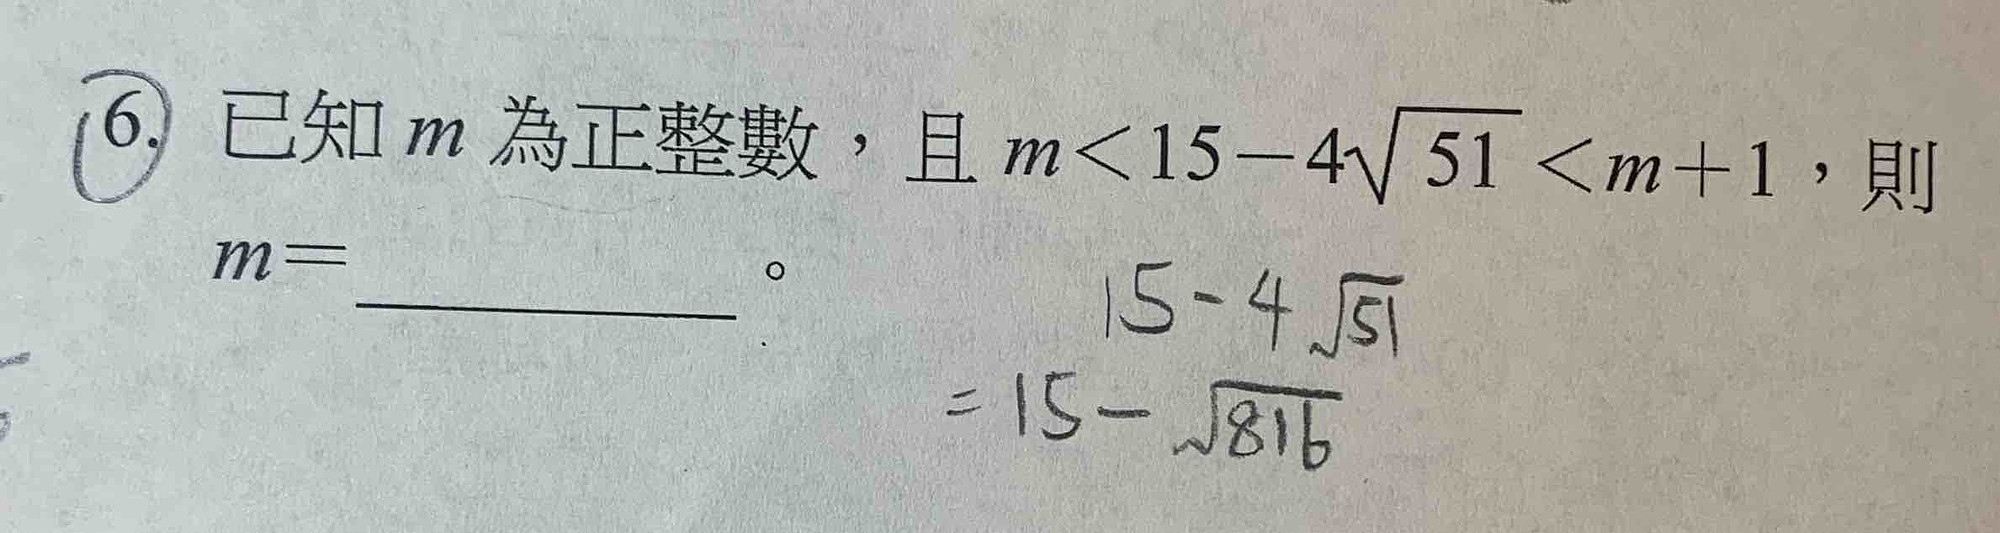 6. 已知 m 為正整數，且 m<15-4√51<m+1，則
m=＿＿＿＿。
15-4√51
=15-√816